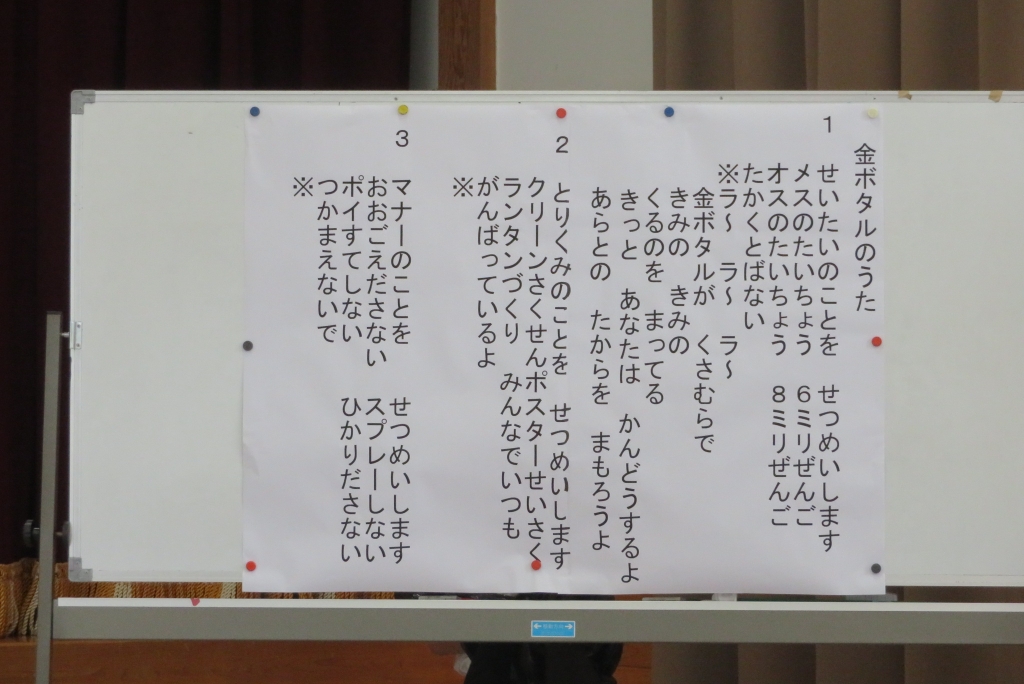 金ボタルのうた
1 せいたいのことを せつめいします
メスのたいちょう 6ミリぜんご
オスのたいちょう 8ミリぜんご
たかくとばない
※ラ～ ラ～ ラ～
金ボタルが くさむらで
きみの きみの
くるのを まってる
きっと あなたは かんどうするよ
あらとの たからを まもろうよ
2 とりくみのことを せつめいします
クリーンさくせんポスターせいさく
ランタンづくり みんなでいつも
がんばっているよ
※
3 マナーのことを せつめいします
おおごえださない スプレーしない
ポイすてしない ひかりださない
つかまえないで
※